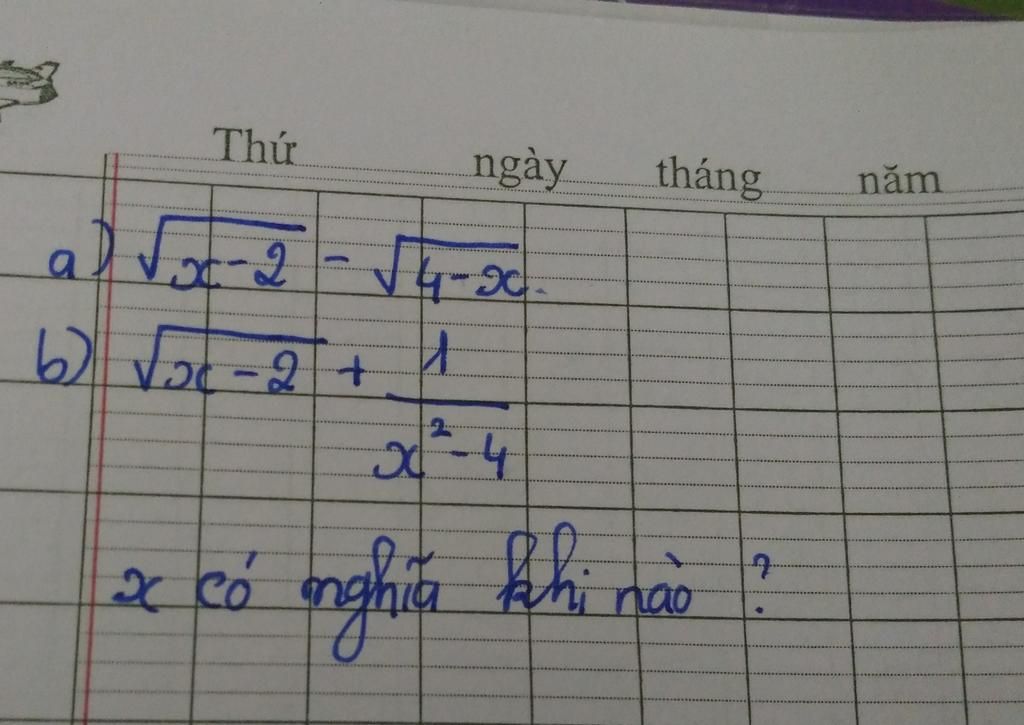 Thứ ngày tháng năm
a) √x-2 - √4-x.
b) √x-2 + 1/x²-4
x có nghĩa khi nào ?